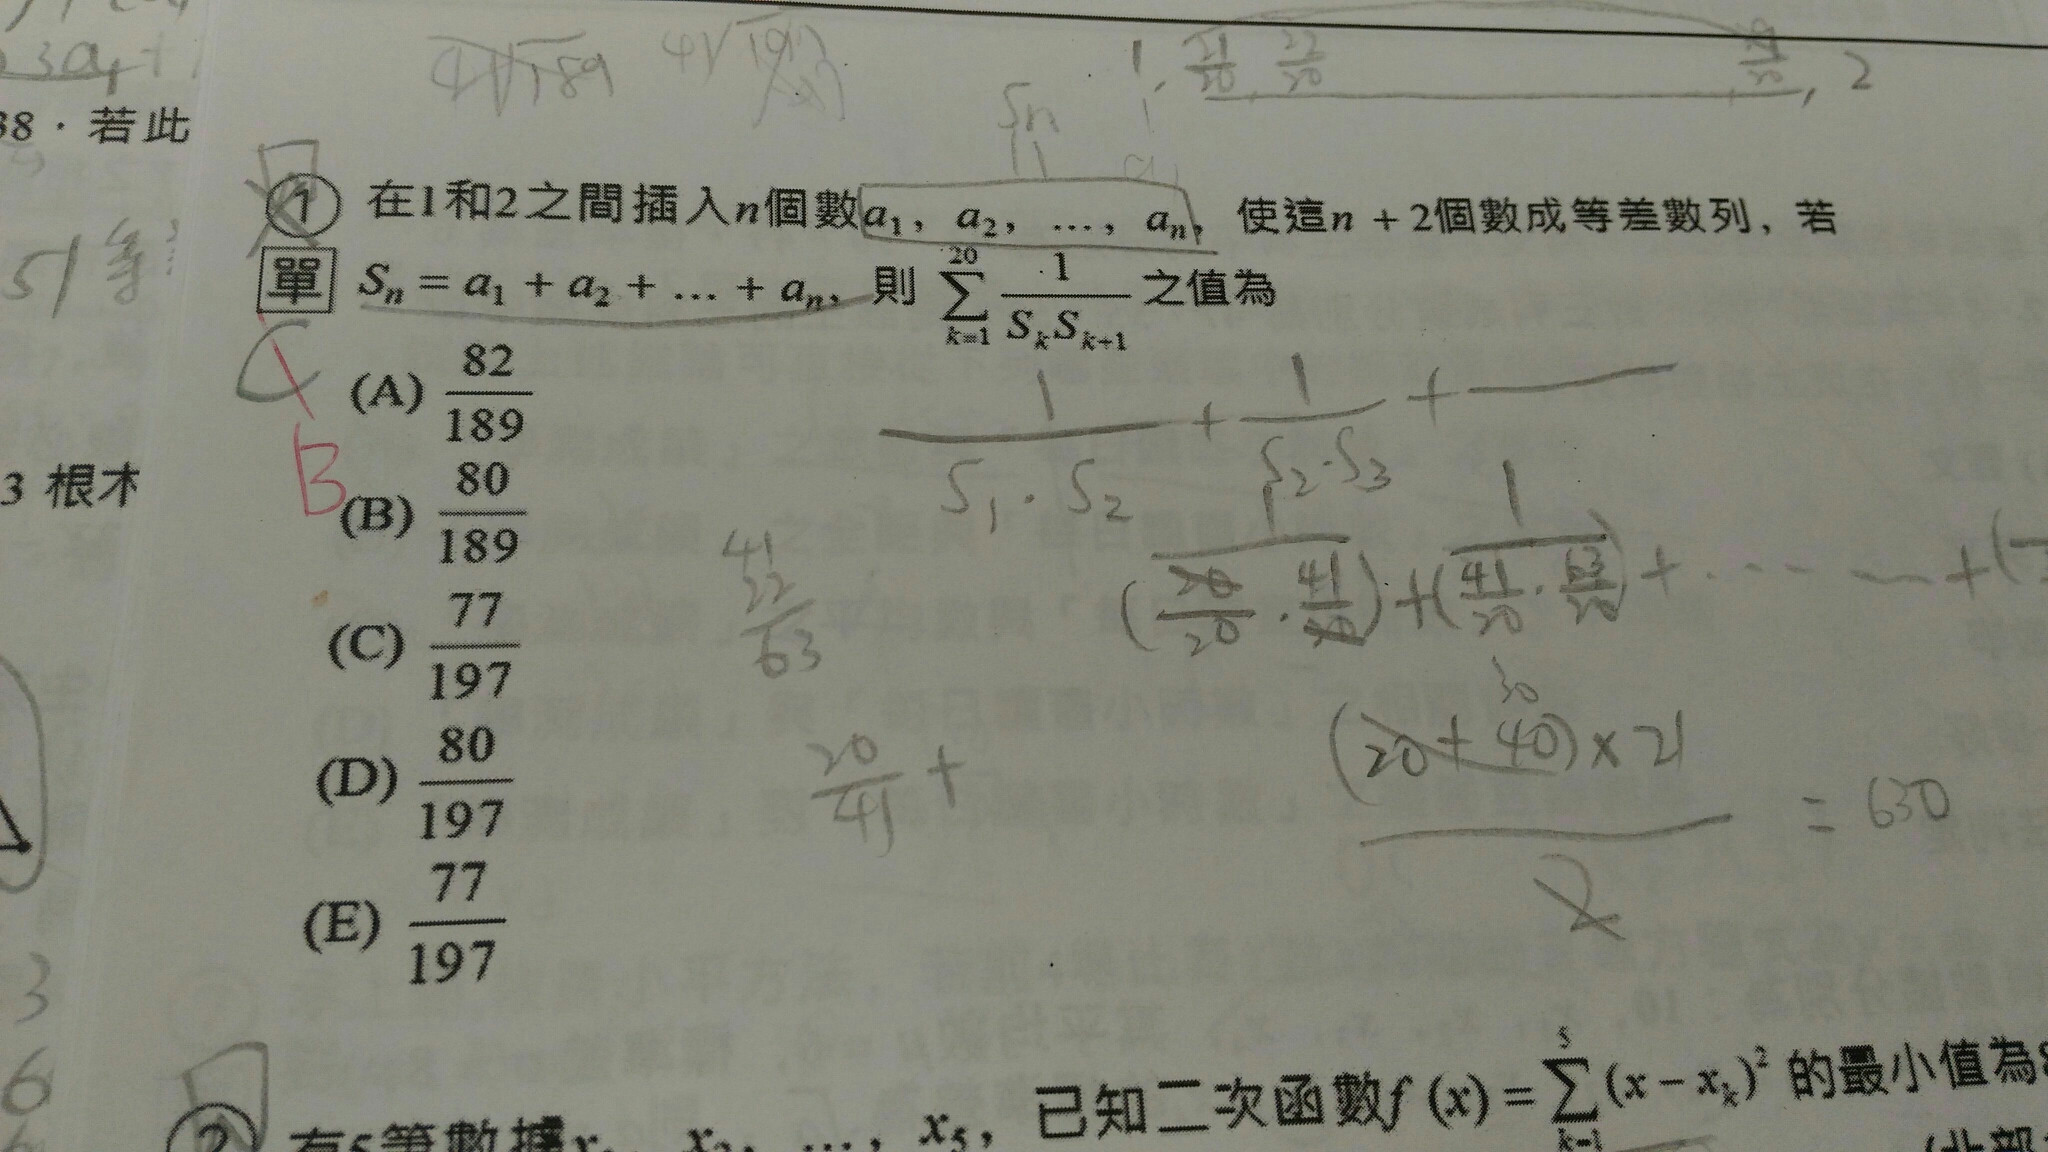 3a₁+
38．若此
4√189 4√197
1, 21/20 22/20 , 2
Sₙ
① 在1和2之間插入n個數a₁，a₂，…，aₙ，使這n + 2個數成等差數列，若
單 Sₙ = a₁ + a₂ + … + aₙ，則 ∑_{k=1}^{20} 1/(SₖSₖ₊₁) 之值為
51 等
C
B
(A) 82/189
(B) 80/189
(C) 77/197
(D) 80/197
(E) 77/197
3 根木
1/(S₁·S₂) + 1/(S₂·S₃) +
1/(20/20 · 41/20) + 1/(41/20 · 63/20) + ······ +
41
22
63
20/41 +
30
(20+40)×21 / 2 = 630
3
6
② 有5筆數據x₁，x₂，…，x₅，已知二次函數f (x) = ∑_{k=1}^{5} (x − xₖ)² 的最小值為8
(北部